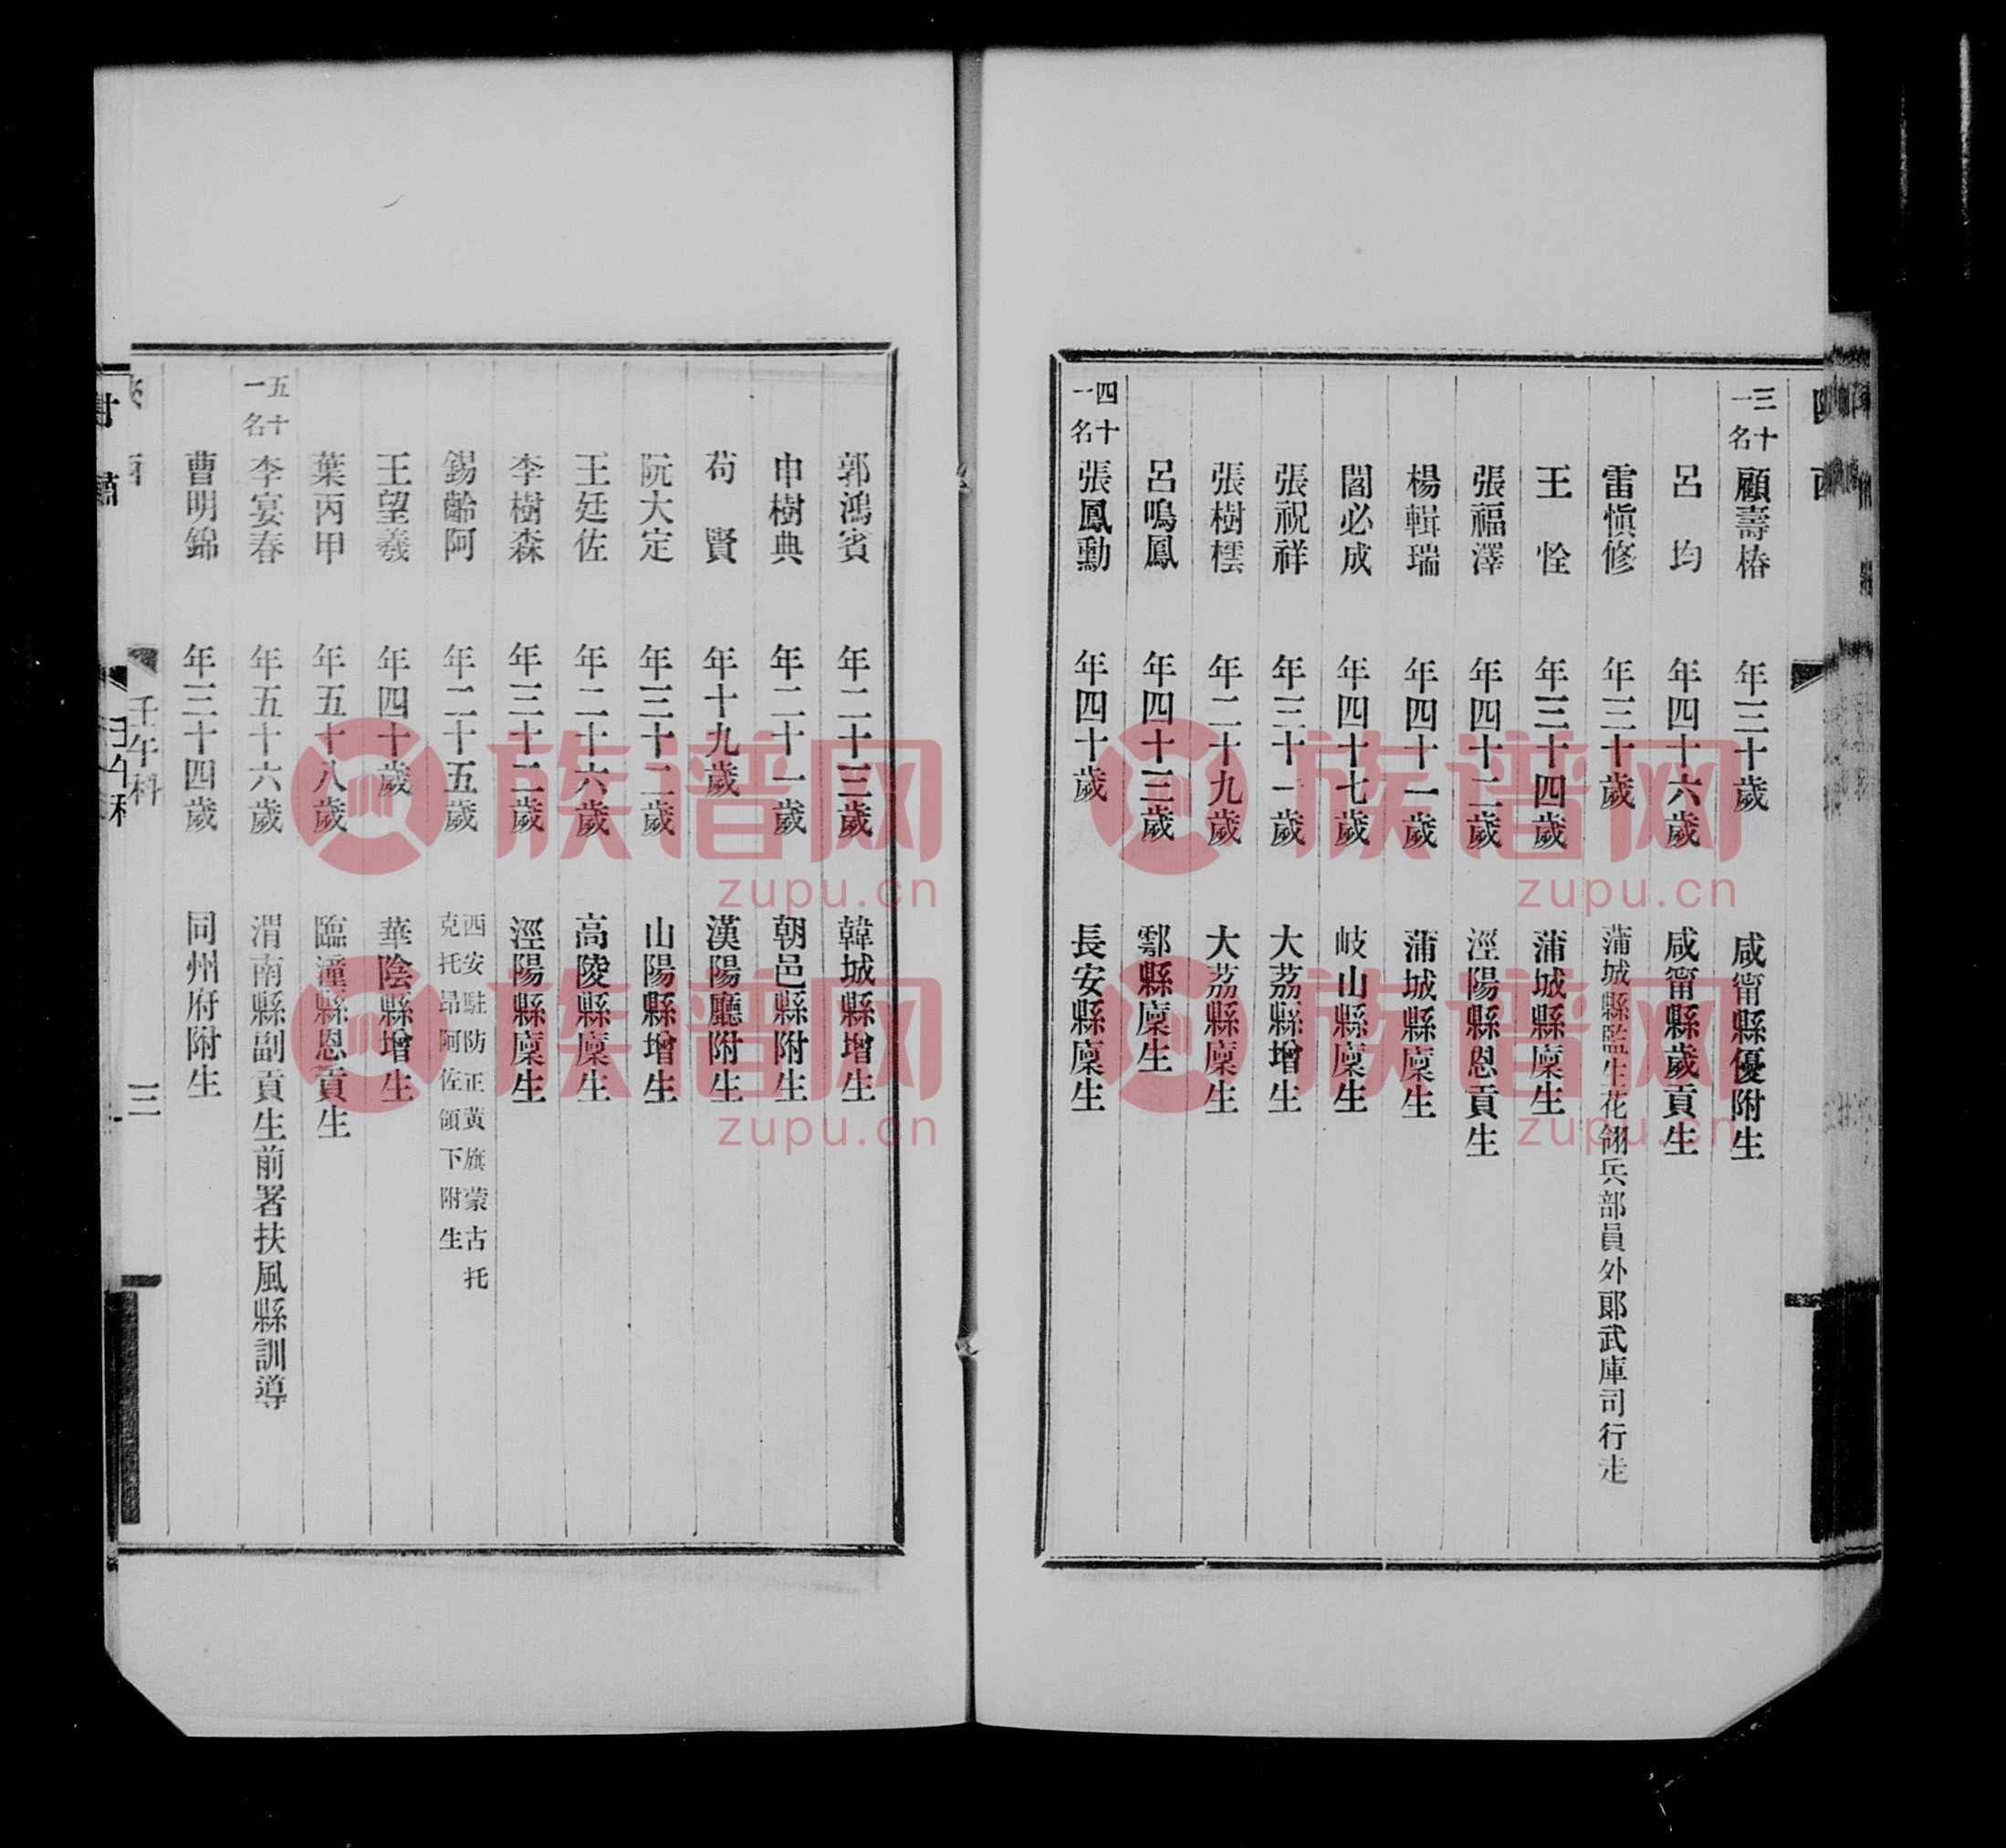 三十一名 顧壽椿 年三十歲 咸甯縣優附生
呂均 年四十六歲 咸甯縣歲貢生
雷愼修 年三十歲 蒲城縣監生花翎兵部員外郎武庫司行走
王恮 年三十四歲 蒲城縣廩生
張福澤 年四十二歲 涇陽縣恩貢生
楊輯瑞 年四十一歲 蒲城縣廩生
閻必成 年四十七歲 岐山縣廩生
張祝祥 年三十一歲 大荔縣增生
張樹橒 年二十九歲 大荔縣廩生
呂鳴鳳 年四十三歲 鄠縣廩生
四十一名 張鳳勳 年四十歲 長安縣廩生
郭鴻賓 年二十三歲 韓城縣增生
申樹典 年二十一歲 朝邑縣附生
苟賢 年十九歲 漢陽廳附生
阮大定 年三十二歲 山陽縣增生
王廷佐 年二十六歲 高陵縣廩生
李樹森 年三十二歲 涇陽縣廩生
錫齡阿 年二十五歲 西安駐防正黃旗蒙古托克托昂阿佐領下附生
王望羲 年四十歲 華陰縣增生
葉丙甲 年五十八歲 臨潼縣恩貢生
五十一名 李宴春 年五十六歲 渭南縣副貢生前署扶風縣訓導
曹明錦 年三十四歲 同州府附生
壬午科 三
族谱网
zupu.cn
族谱网
zupu.cn
族谱网
zupu.cn
族谱网
zupu.cn